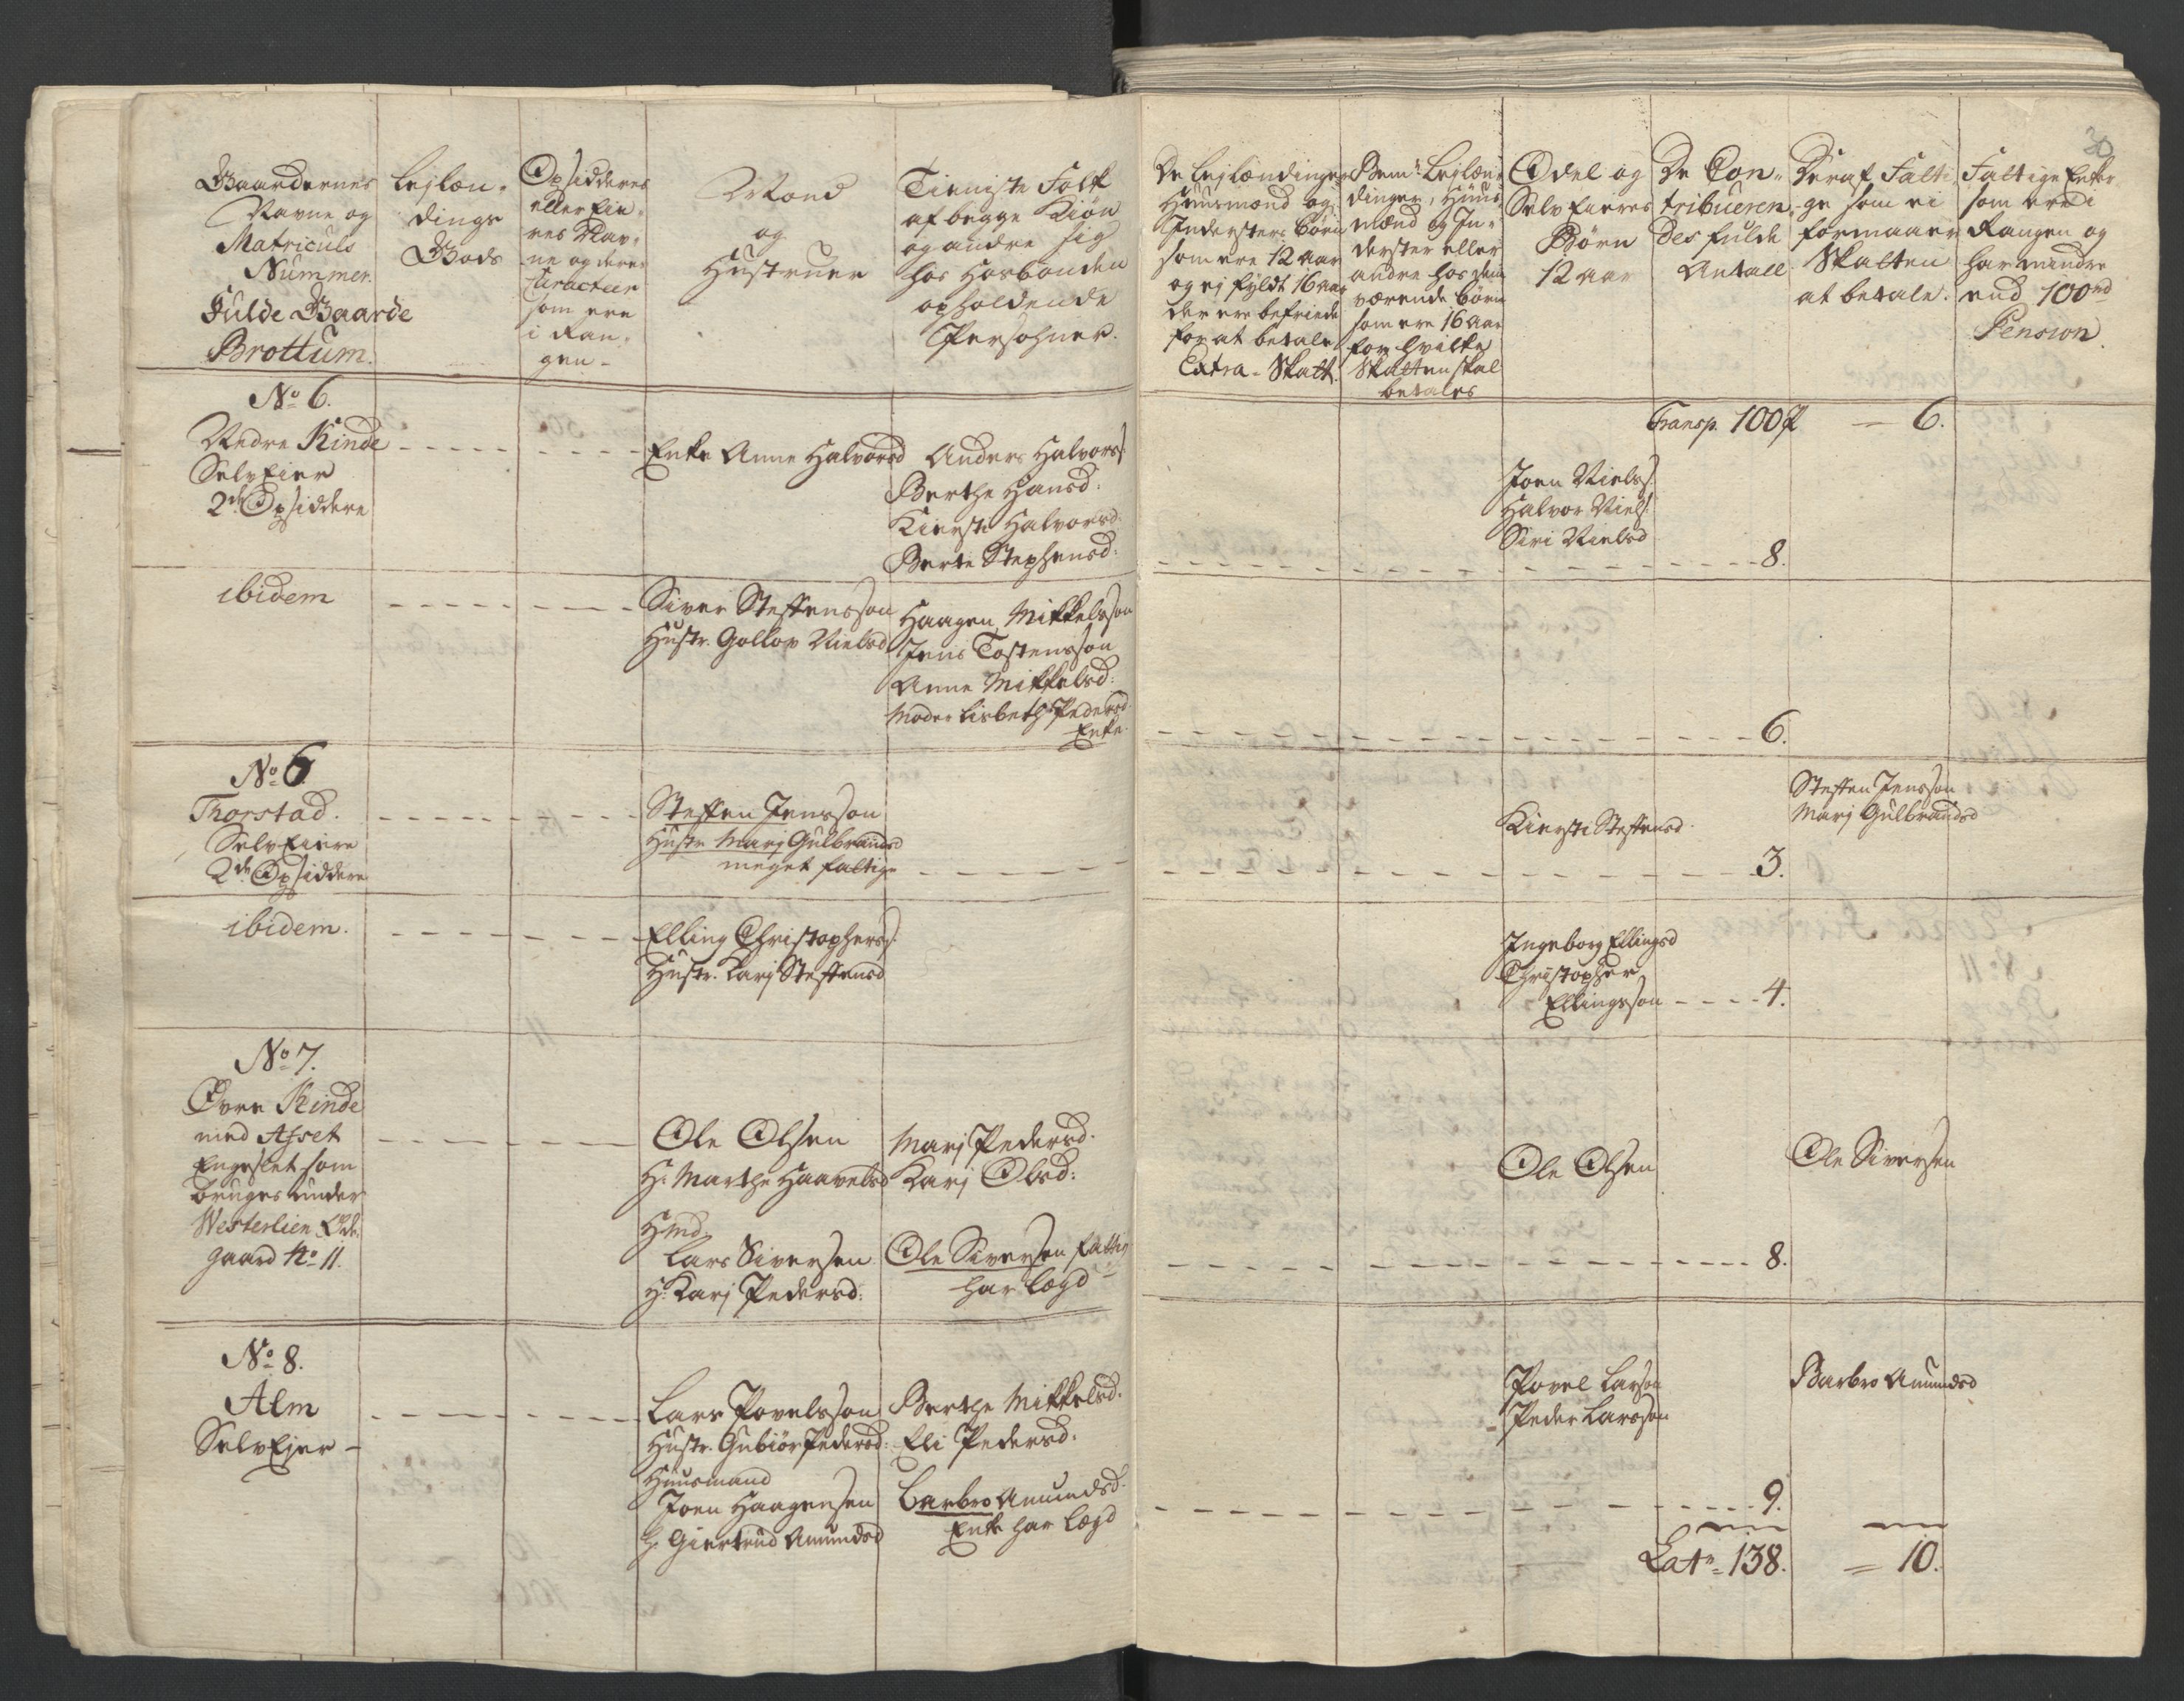 Gaardernes
Navne og
Matriculs
Nummer.
Fulde Gaarde
Brottum.
Lejlæn-
dings
Gods
Opsidderes
eller Eie-
res Nav-
ne og deres
Caracteer
som ere
i Ran-
gen-
Mænd
og
Hustruer
Tieniste Folk
af begge Kiøn
og andre sig
hos Hosbonden
opholdende
Persohner.
De Lejlændinger
Huusmænd og
Indersters Børn
som ere 12 aar
og ej fyldt 16 aar
der ere befriede
for at betale
Extra-Skatt.
Bemte Lejlæn-
dinger, Huus-
mænd og In-
derster eller
andre hos dem
værende børn
som ere 16 aar
for hvilke
Skatten skal
betales
Odel og
Selv Eieres
Børn
12 aar
De Con-
tribueren-
des fulde
Antall
Deraf Fatti-
ge som ei
formaaer
Skatten
at betale.
Fattige Enker
som ere i
Rangen og
har mindre
end 100 rd
Pension.
30
Transp. 100 — 6.
No 6.
Nedre Kinde
SelvEier
2de Opsiddere
Enke Anne Halvorsd
Anders Halvors:
Berthe Hansd:
Kiersti Halvorsd:
Berte Stephensd:
Joen Niels:
Halvor Niels:
Siri Nielsd
8.
ibidem
Siver Steffensson
Hustr. Gollov Nielsd
Haagen Mikkelsson
Jens Tostensson
Anne Mikkelsd:
Moder Lisbeth Pedersd
Enke.
6.
No 6
Thorstad.
SelvEiere
2de Opsiddere
Steffen Jensson
Hustr Marj Gulbrandsd
meget fattige
Kiersti Steffensd.
3.
Steffen Jensson
Marj Gulbrandsd
ibidem.
Elling Christophers:
Hustr. Karj Steffensd
Ingeborg Ellingsd
Christopher
Ellingsson
4.
No 7.
Øvre Kinde
med Asset
Engeslet som
bruges under
Westerlien Øde-
gaard No 11.
Ole Olsen
H: Marthe Haavelsd
Hmd.
Lars Siversen
H: Karj Pedersd:
Marj Pedersd.
Karj Olsd:
Ole Siversen fattig
har lægd
Ole Olsen
8.
Ole Siversen
No 8.
Alm
SelvEjer -
Lars Povelsson
Hustr. Gubiør Pedersd:
Huusmand
Joen Haagensen
H. Giertrud Amundsd
Berthe Mikkelsd.
Eli Pedersd.
Barbro Amundsd.
Enke har lægd
Povel Larson
Peder Larsson
9.
Barbro Amundsd
Latr 138. = 10.